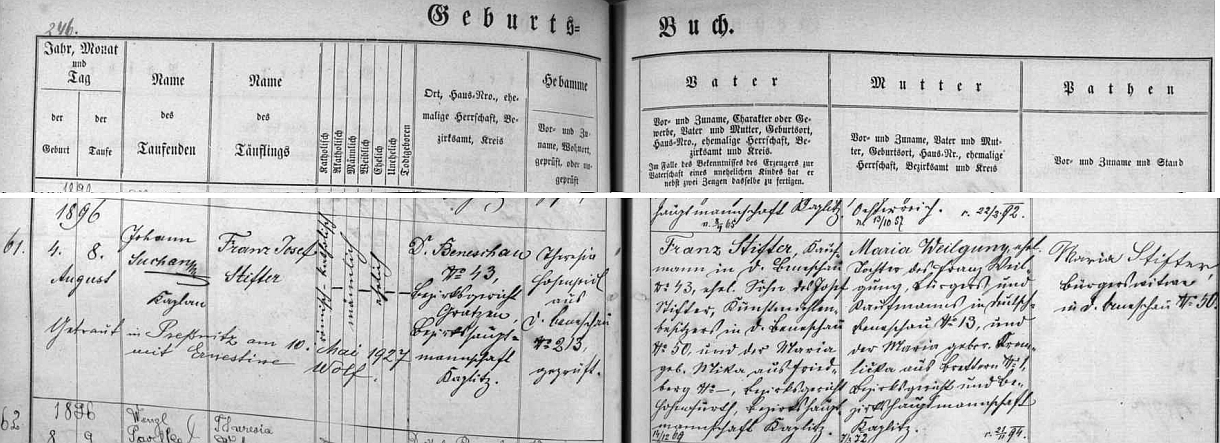 246.
Geburts-
Buch.
Jahr, Monat
und
Tag
der
Geburt
der
Taufe
Name
des
Taufenden
Name
des
Täuflings
Katholisch
Akatholisch
Männlich
Weiblich
Ehelich
Unehelich
Todtgeboren
Ort, Haus-Nro., ehe-
malige Herrschaft, Be-
zirksamt, Kreis
Hebamme
Vor- und Zu-
name, Wohnort,
geprüft, oder un-
geprüft
Vater
Vor- und Zuname, Charakter oder Ge-
werbe, Vater und Mutter, Geburtsort,
Haus-Nro., ehemalige Herrschaft, Be-
zirksamt und Kreis.
Im Falle des Bekenntnisses des Erzeugers zur
Vaterschaft eines unehelichen Kindes hat er
nebst zwei Zeugen dasselbe zu fertigen.
Mutter
Vor- und Zuname, Vater und Mut-
ter, Geburtsort, Haus-Nr., ehemalige
Herrschaft, Bezirksamt und Kreis
Pathen
Vor- und Zuname und Stand
1896
61.
4. 8.
August
Johann
Suchan
Kaplan
Franz Josef
Stifter
römisch-katholisch
männlich
ehelich
D. Beneschau
No 43,
Bezirksgericht
Gratzen,
Bezirkshaupt-
mannschaft
Kaplitz.
Theresia
aus
D. Beneschau
No 213,
geprüft.
Getraut in Preßnitz am 10. Mai 1927
mit Ernestine Wolf.
hauptmannschaft Kaplitz
Franz Stifter, Kauf-
mann in D. Beneschau
No 43, ehel. Sohn des Josef
Stifter, Kunstmühlen-
besitzers in D. Beneschau
No 50, und der Maria
geb. Mika aus Fried-
berg No, Bezirksgericht
Hohenfurth, Bezirkshaupt-
mannschaft Kaplitz.
Oesterreich.
Maria Weilguny, ehel.
Tochter des Franz Weil-
guny, Bürgers und
Kaufmanns in Deutsch-
Beneschau No 13, und
der Maria gebor.
aus Brettern No 1,
Bezirksgericht und Be-
zirkshauptmannschaft
Kaplitz.
Maria Stifter,
Bürgerswitwe
in D. Beneschau No 50.
62
1896
8. 9.
Theresia